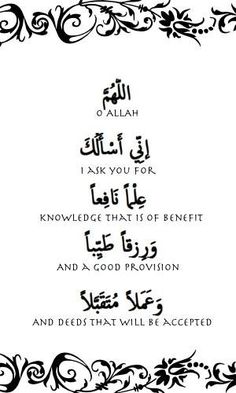 اللَّهُمَّ
O ALLAH
إِنِّي أَسْأَلُكَ
I ASK YOU FOR
عِلْماً نَافِعاً
KNOWLEDGE THAT IS OF BENEFIT
وَرِزْقاً طَيِّباً
AND A GOOD PROVISION
وَعَمَلاً مُتَقَبَّلاً
AND DEEDS THAT WILL BE ACCEPTED